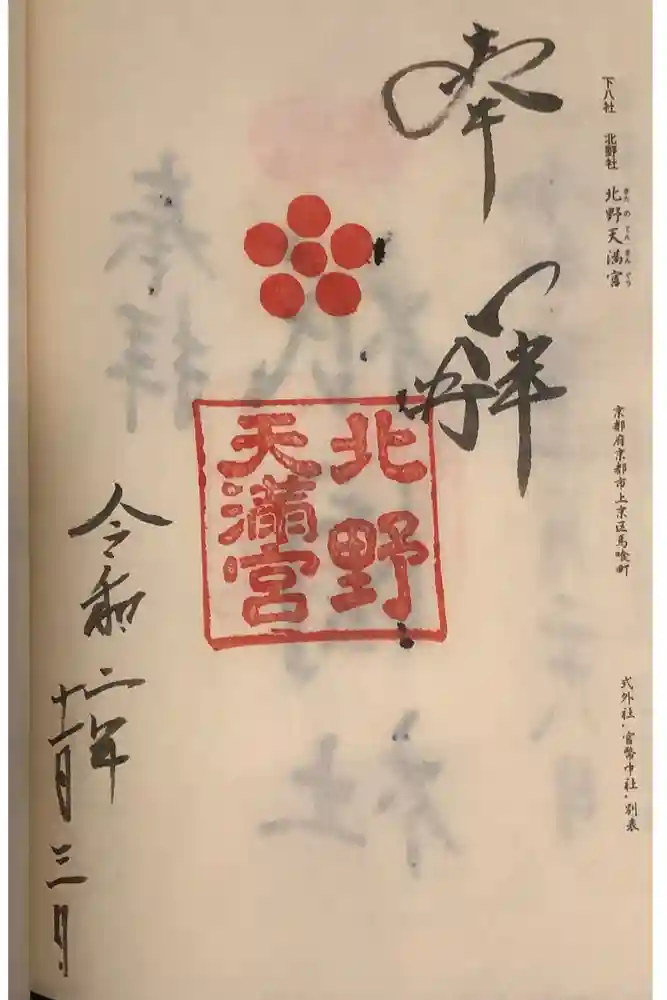 下八社 北野社 北野天満宮
きたのてんまんぐう
京都府京都市上京区馬喰町
式外社・官幣中社・別表
奉拝
北野
天満宮
令和二年
十一月三日